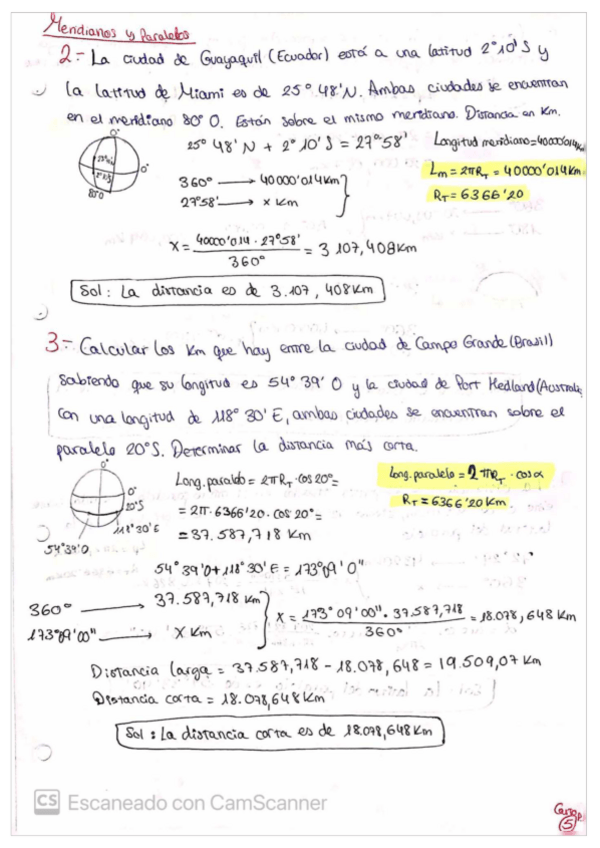 Meridianos y Paralelos
2.- La ciudad de Guayaquil (Ecuador) está a una latitud 2°10'S y
la latitud de Miami es de 25° 48'N. Ambas ciudades se encuentran
en el meridiano 80° O. Están sobre el mismo meridiano. Distancia en Km.
0°
0°
25° 48' N + 2° 10' S = 27° 58'
Longitud meridiano = 40000'014 Km
Lm = 2πRT = 40000'014 Km
RT = 6366'20
80°O
360° → 40000'014 Km
27°58' → x Km
x = 40000'014 · 27°58' / 360° = 3 107,408 Km
Sol: La distancia es de 3.107, 408 Km
3.- Calcular los Km que hay entre la ciudad de Campo Grande (Brasil)
sabiendo que su longitud es 54° 39' O y la ciudad de Port Hedland (Australia,
con una longitud de 118° 30' E, ambas ciudades se encuentran sobre el
paralelo 20°S. Determinar la distancia más corta.
0°
0°
20°S
118°30'E
54°39'O
Long. paralelo = 2πRT · cos 20° =
= 2π · 6366'20 · cos 20° =
= 37.587,718 Km
Long. paralelo = 2πRT · cos α
RT = 6366'20 Km
54° 39'0 + 118° 30' E = 173° 09' 0"
360° → 37.587,718 Km
173°09'00" → x Km
x = 173° 09'00" · 37.587,718 / 360° = 18.078,648 Km
Distancia larga = 37.587,718 - 18.078,648 = 19.509,07 Km
Distancia corta = 18.078,648 Km
Sol: La distancia corta es de 18.078,648 Km
CS Escaneado con CamScanner
5